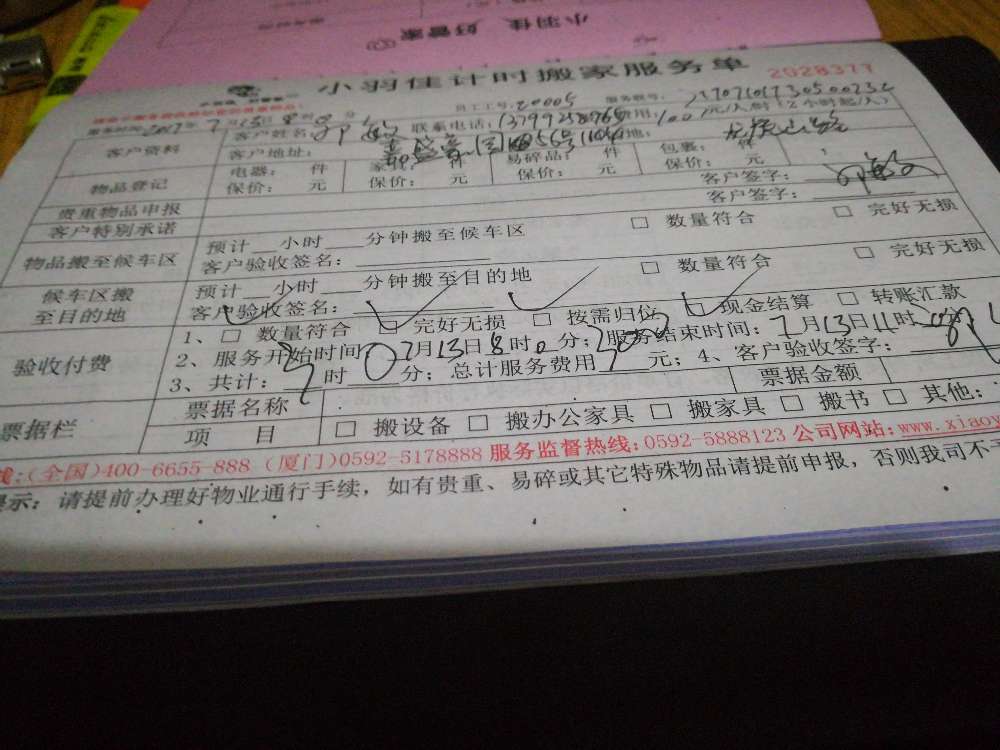 小羽佳 好管家
小羽佳计时搬家服务单
2028377
员工工号: 20005 服务账号:
服务时间: 2017年7月13日8时0分 客户姓名: 联系电话: 费用: 100元/人/时(2小时起/人)
客户资料 客户地址:
物品登记 电器: 件 家具: 件 易碎品: 件 包裹: 件
保价: 元 保价: 元 保价: 元 保价: 元
贵重物品申报 客户签字:
客户特别承诺 客户签字:
物品搬至候车区 预计 小时 分钟搬至候车区 □ 数量符合 □ 完好无损
客户验收签名:
候车区搬至目的地 预计 小时 分钟搬至目的地 □ 数量符合 □ 完好无损
客户验收签名:
验收付费 1、□ 数量符合 □ 完好无损 □ 按需归位 □ 现金结算 □ 转账汇款
2、服务开始时间: 7月13日8时0分; 服务结束时间: 7月13日11时
3、共计: 3时0分; 总计服务费用 300元; 4、客户验收签字:
票据栏 票据名称 票据金额
项 目 □ 搬设备 □ 搬办公家具 □ 搬家具 □ 搬书 □ 其他:
线:(全国)400-6655-888 (厦门)0592-5178888 服务监督热线:0592-5888123 公司网站:www.xiaoy
提示: 请提前办理好物业通行手续, 如有贵重、易碎或其它特殊物品请提前申报, 否则我司不